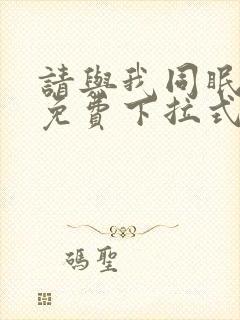 請與我同眠
免費下拉式
碼聖